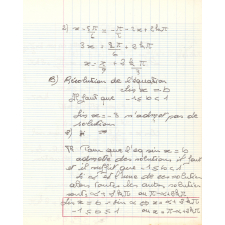 2) x - 5π/6 = -π/2 - 2x + 2kπ
3x = 2π/6 + 2kπ
x = π/9 + 2kπ/3
B) Résolution de l'équation
sin x = b
Il faut que -1 ≤ b ≤ 1
sin x = -3 n'admet pas de
solution
Pour que l'eq sin x = b
admette des solutions il faut
et il suffit que -1 ≤ b ≤ 1
Si α est l'une de ces solutions
alors toutes les autres solutions
sont α + 2kπ ou π - α + 2kπ
sin x = b = sin α ⇔ x = α + 2kπ
-1 ≤ b ≤ 1 ou x = π - α + 2kπ